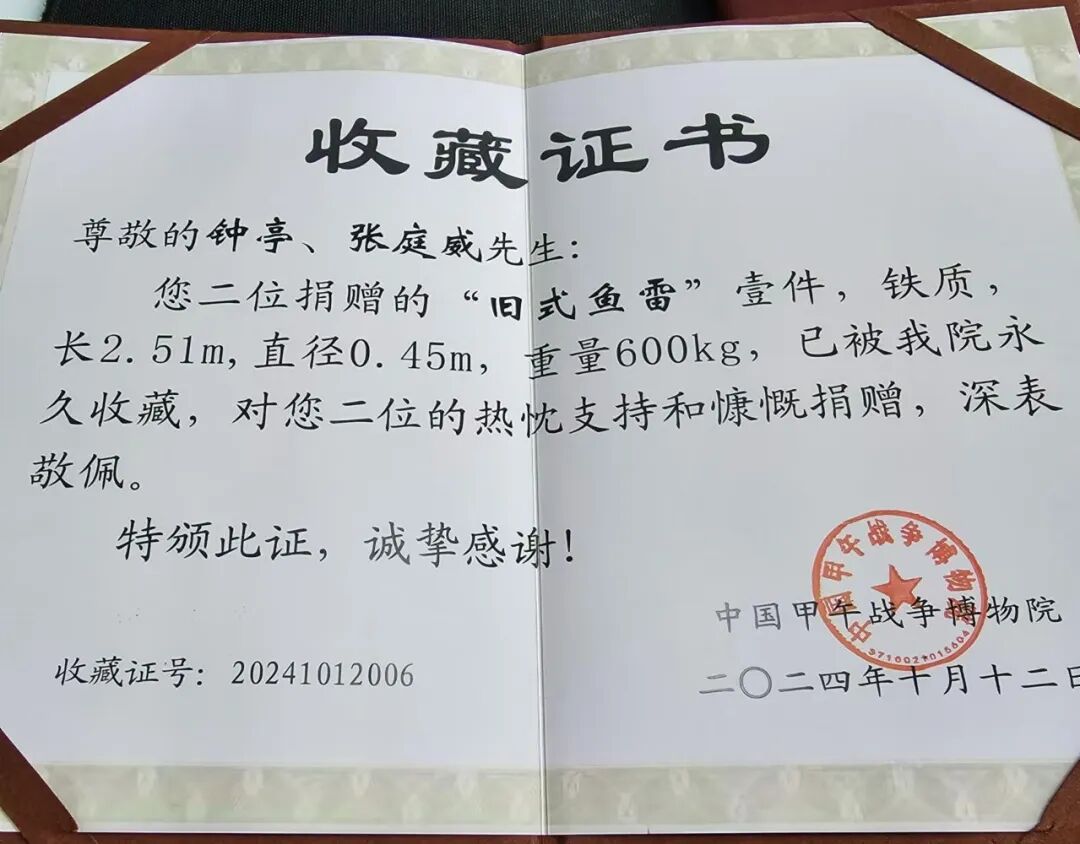 收藏证书
尊敬的钟亭、张庭威先生：
您二位捐赠的“旧式鱼雷”壹件，铁质，
长2.51m,直径0.45m，重量600kg，已被我院永
久收藏，对您二位的热忱支持和慷慨捐赠，深表
敬佩。
特颁此证，诚挚感谢！
中国甲午战争博物院
中国甲午战争博物院
9710021015604
收藏证号：20241012006
二〇二四年十月十二日